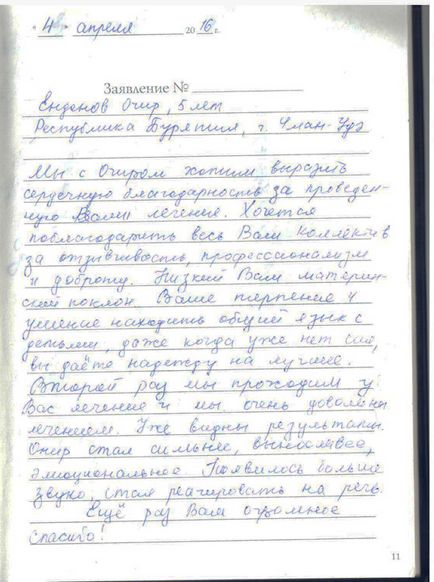 "4" апреля 2016 г.
Заявление №
Енданов Очир, 5 лет
Республика Бурятия, г. Улан-Удэ
Мы с Очиром хотим выразить
сердечную благодарность за проведен-
ную Вами лечение. Хочется
поблагодарить весь Ваш коллектив
за отзывчивость, профессионализм
и доброту. Низкий Вам материн-
ский поклон. Ваше терпение и
умение находить общий язык с
детьми, даже когда уже нет сил,
вы даёте надежду на лучшее.
Второй раз мы проходим у
Вас лечение и мы очень довольны
лечением. Уже видны результаты.
Очир стал сильнее, выносливее,
эмоциональнее. Появилось больше
звуко, стал реагировать на речь.
Ещё раз Вам огромное
спасибо!
11